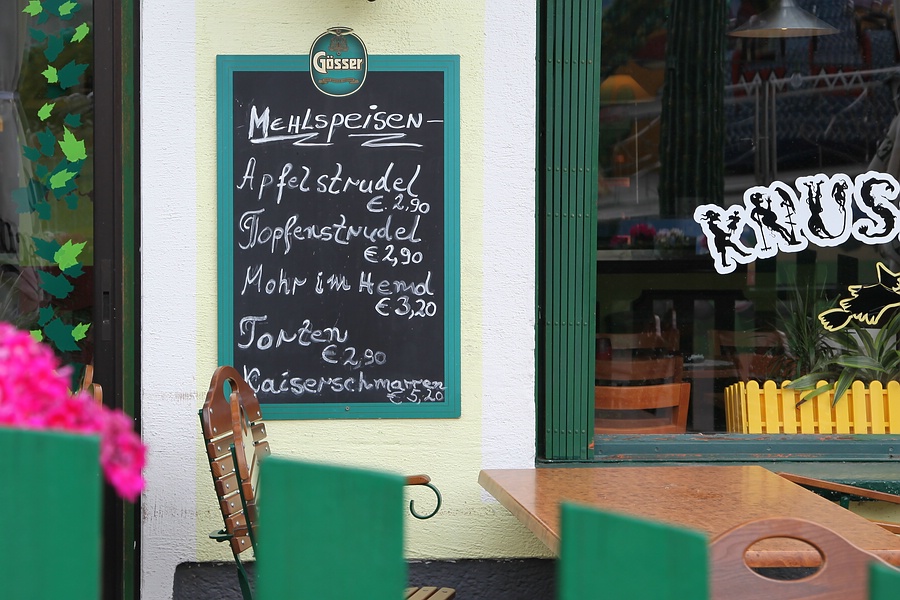 Gösser
Mehlspeisen
Apfelstrudel
€ 2,90
Topfenstrudel
€ 2,90
Mohr im Hemd
€ 3,20
Torten
€ 2,90
Kaiserschmarren
€ 5,20
KNUS